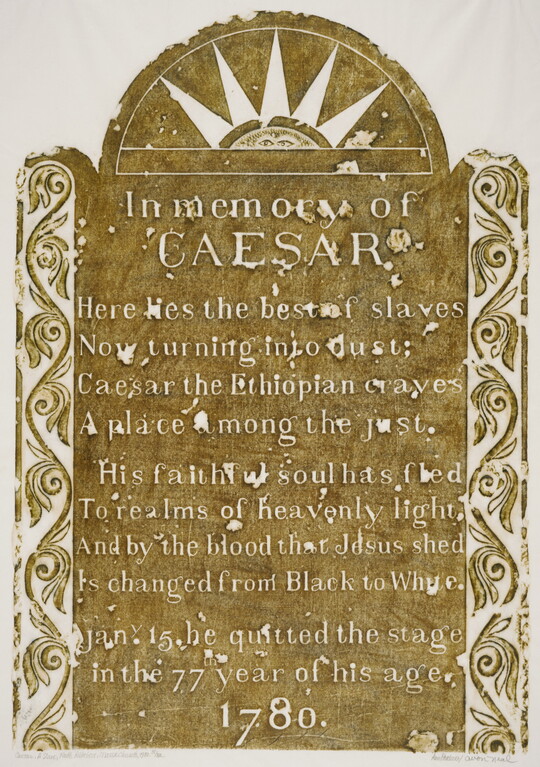 In memory of
CAESAR
Here lies the best of slaves
Now turning into dust;
Caesar the Ethiopian craves
A place among the just.
His faithful soul has fled
To realms of heavenly light,
And by the blood that Jesus shed
Is changed from Black to White.
Jan.y 15, he quitted the stage
in the 77th year of his age.
1780.